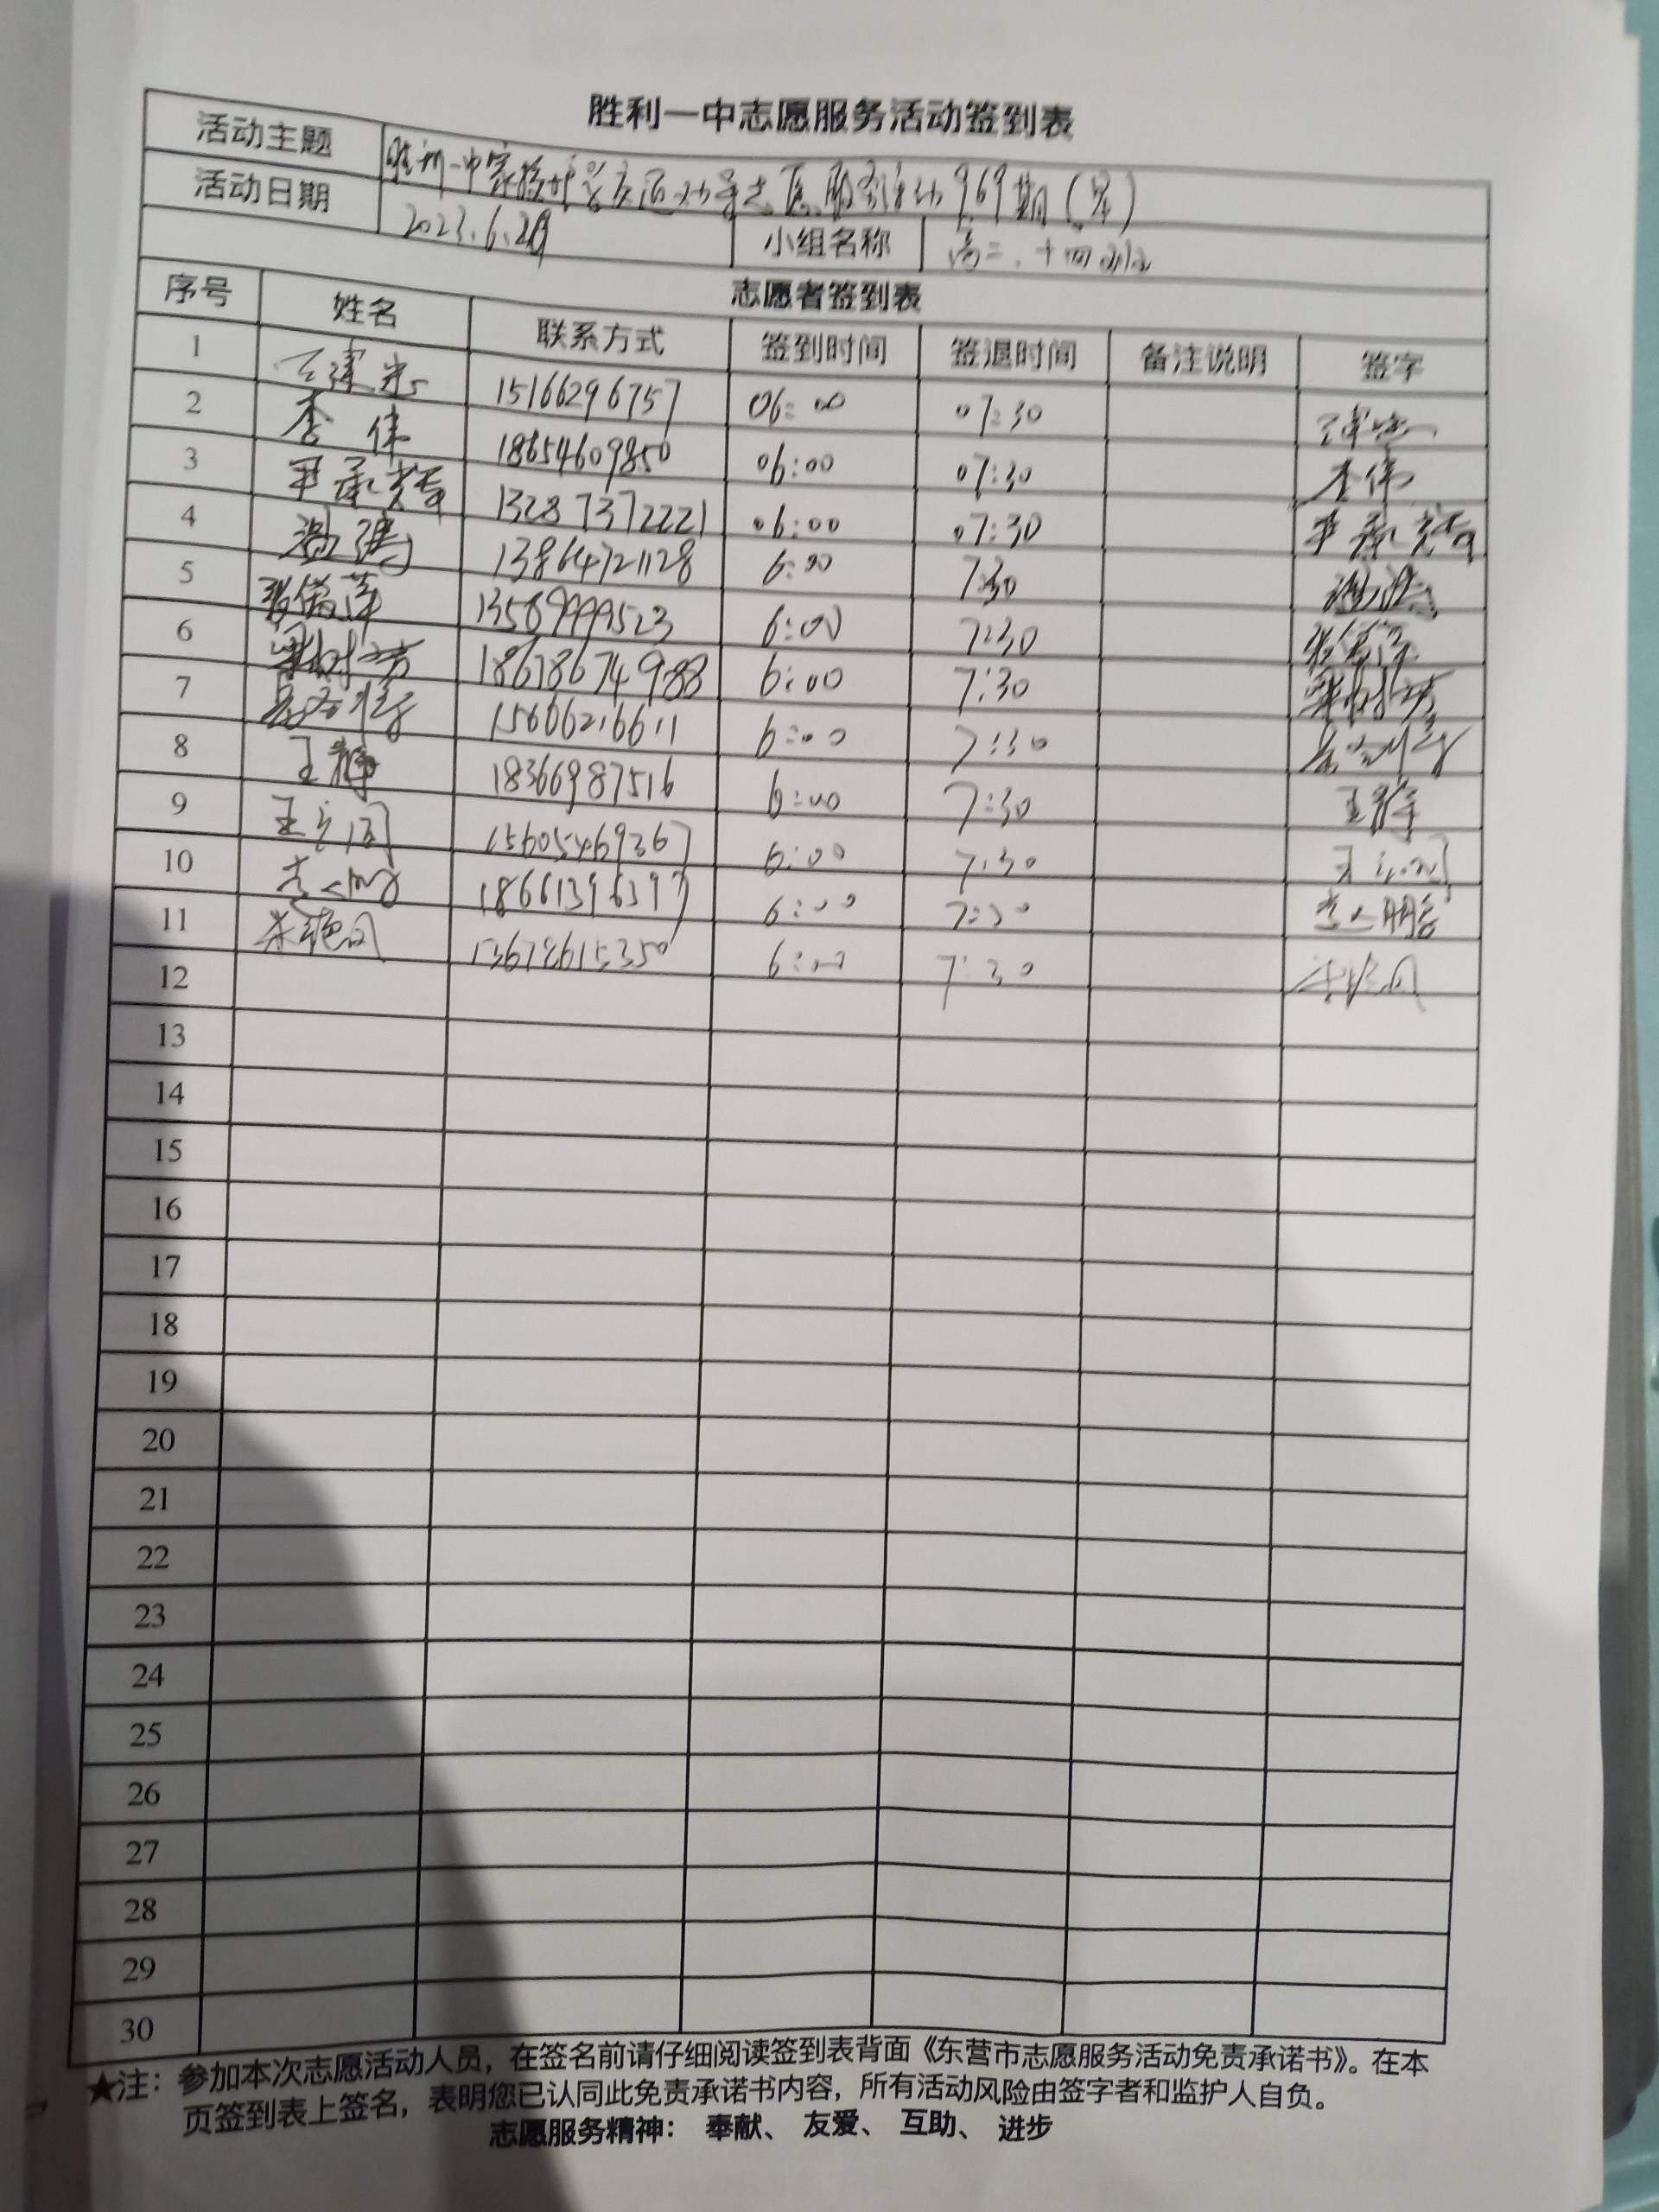 胜利一中志愿服务活动签到表
活动主题 胜利一中家校护学交通劝导志愿服务活动969期(早)
活动日期 2023.6.28 小组名称 高二.十四
志愿者签到表
序号 姓名 联系方式 签到时间 签退时间 备注说明 签字
1 15166296757 06:00 07:30
2 李伟 18654609850 06:00 07:30 李伟
3 13287372221 06:00 07:30
4 13864721128 6:00 7:30
5 13589999523 6:00 7:30
6 18678674988 6:00 7:30
7 15666216611 6:00 7:30
8 王静 18366987516 6:00 7:30 王静
9 王 15605469367 6:00 7:30 王
10 18661396397 6:00 7:30
11 朱艳凤 13678615350 6:00 7:30
12
13
14
15
16
17
18
19
20
21
22
23
24
25
26
27
28
29
30
★注：参加本次志愿活动人员，在签名前请仔细阅读签到表背面《东营市志愿服务活动免责承诺书》。在本
页签到表上签名，表明您已认同此免责承诺书内容，所有活动风险由签字者和监护人自负。
志愿服务精神： 奉献、 友爱、 互助、 进步